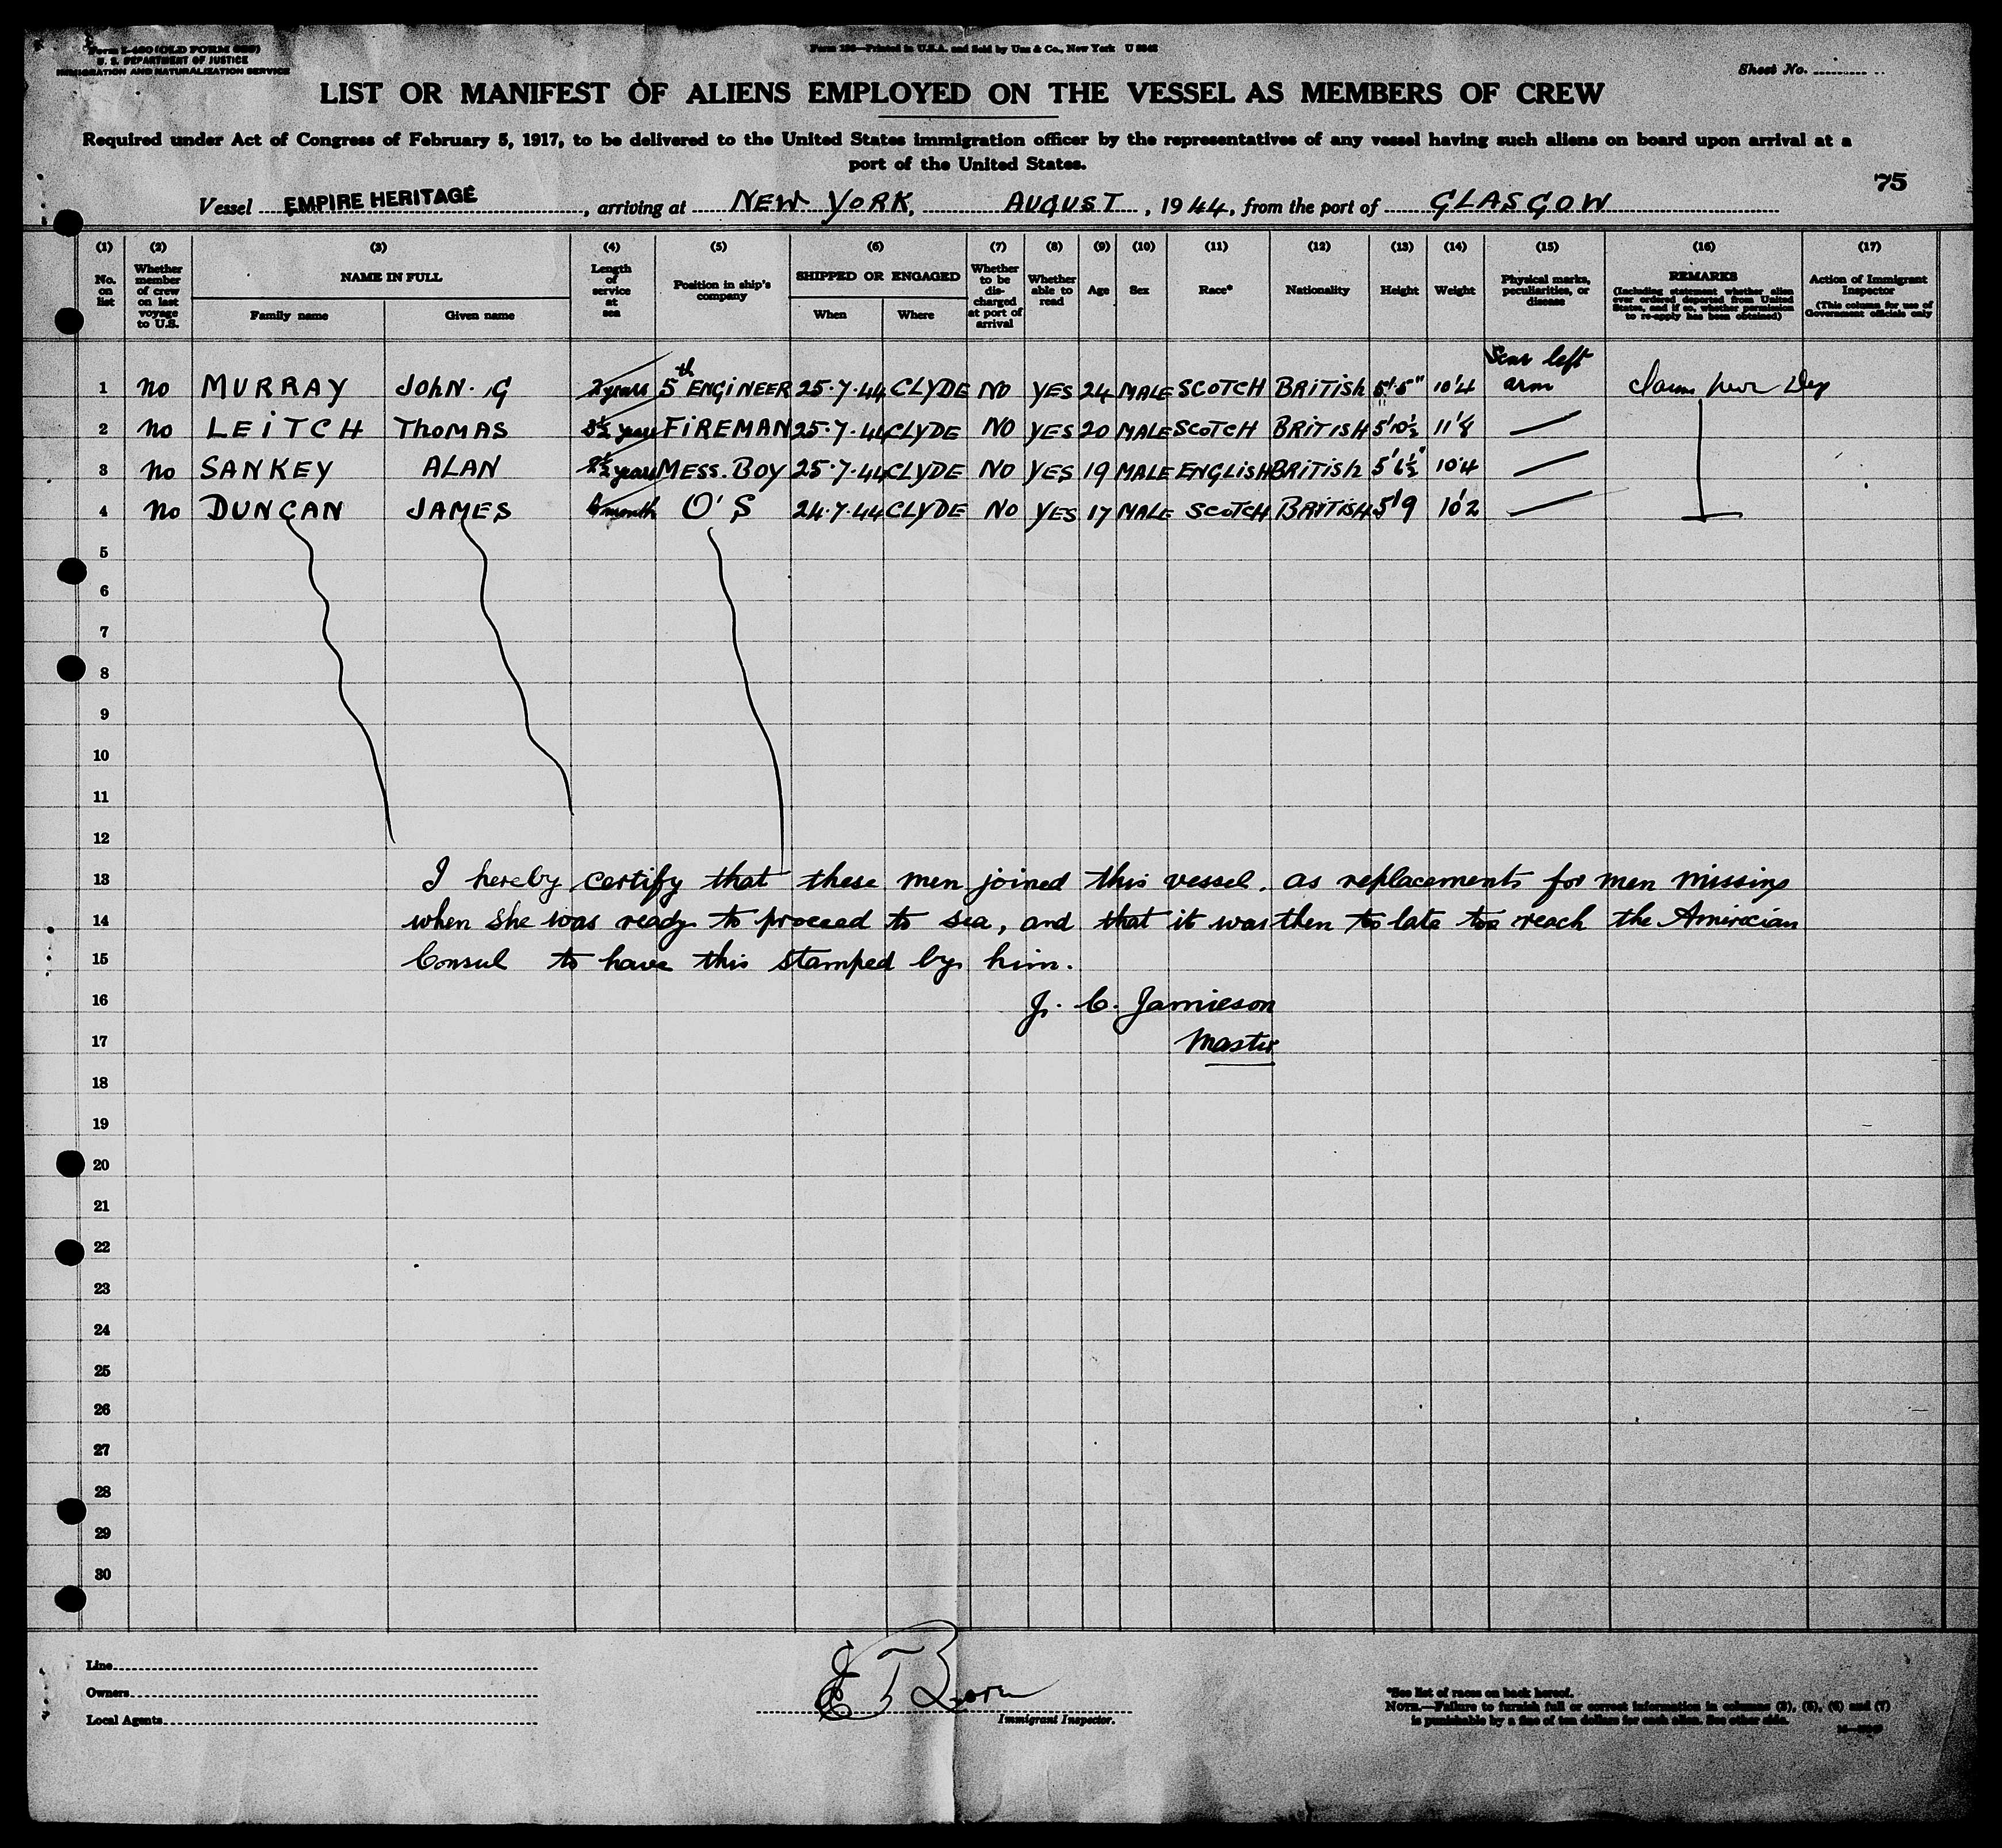 Form I-480 (OLD FORM 689)
U. S. DEPARTMENT OF JUSTICE
IMMIGRATION AND NATURALIZATION SERVICE
Printed in U.S.A. and Sold by Unz & Co., New York
Sheet No.
LIST OR MANIFEST OF ALIENS EMPLOYED ON THE VESSEL AS MEMBERS OF CREW
Required under Act of Congress of February 5, 1917, to be delivered to the United States immigration officer by the representatives of any vessel having such aliens on board upon arrival at a
port of the United States.
75
Vessel EMPIRE HERITAGE, arriving at NEW YORK, AUGUST, 1944, from the port of GLASGOW
(1) (2) (3) (4) (5) (6) (7) (8) (9) (10) (11) (12) (13) (14) (15) (16) (17)
No. on list
Whether member of crew on last voyage to U.S.
NAME IN FULL
Family name Given name
Length of service at sea
Position in ship's company
SHIPPED OR ENGAGED
When Where
Whether to be discharged at port of arrival
Whether able to read
Age
Sex
Race*
Nationality
Height
Weight
Physical marks, peculiarities, or disease
REMARKS
(Including statement whether alien ever ordered deported from United States, and if so, whether permission to re-apply has been obtained)
Action of Immigrant Inspector
(This column for use of Government officials only
1 no MURRAY JOHN. G 2 years 5th ENGINEER 25.7.44 CLYDE NO YES 24 MALE SCOTCH BRITISH 5'.5" 10'4 Scar left arm
2 no LEITCH THOMAS 3½ years FIREMAN 25.7.44 CLYDE NO YES 20 MALE SCOTCH BRITISH 5'10½ 11'8
3 no SANKEY ALAN 2½ years MESS. BOY 25.7.44 CLYDE NO YES 19 MALE ENGLISH BRITISH 5'6½" 10'4
4 no DUNCAN JAMES month O'S 24.7.44 CLYDE NO YES 17 MALE SCOTCH BRITISH 5'9 10'2
5
6
7
8
9
10
11
12
13 I hereby certify that these men joined this vessel. as replacements for men missing
14 when she was ready to proceed to sea, and that it was then to late too reach the Amirecian
15 Consul to have this stamped by him.
16 J. C. Jamieson
17 Master
18
19
20
21
22
23
24
25
26
27
28
29
30
Line
Owners
Local Agents
Immigrant Inspector.
*See list of races on back hereof.
NOTE.—Failure to furnish full or correct information in columns (3), (5), (6) and (7)
is punishable by a fine of ten dollars for each alien. See other side.